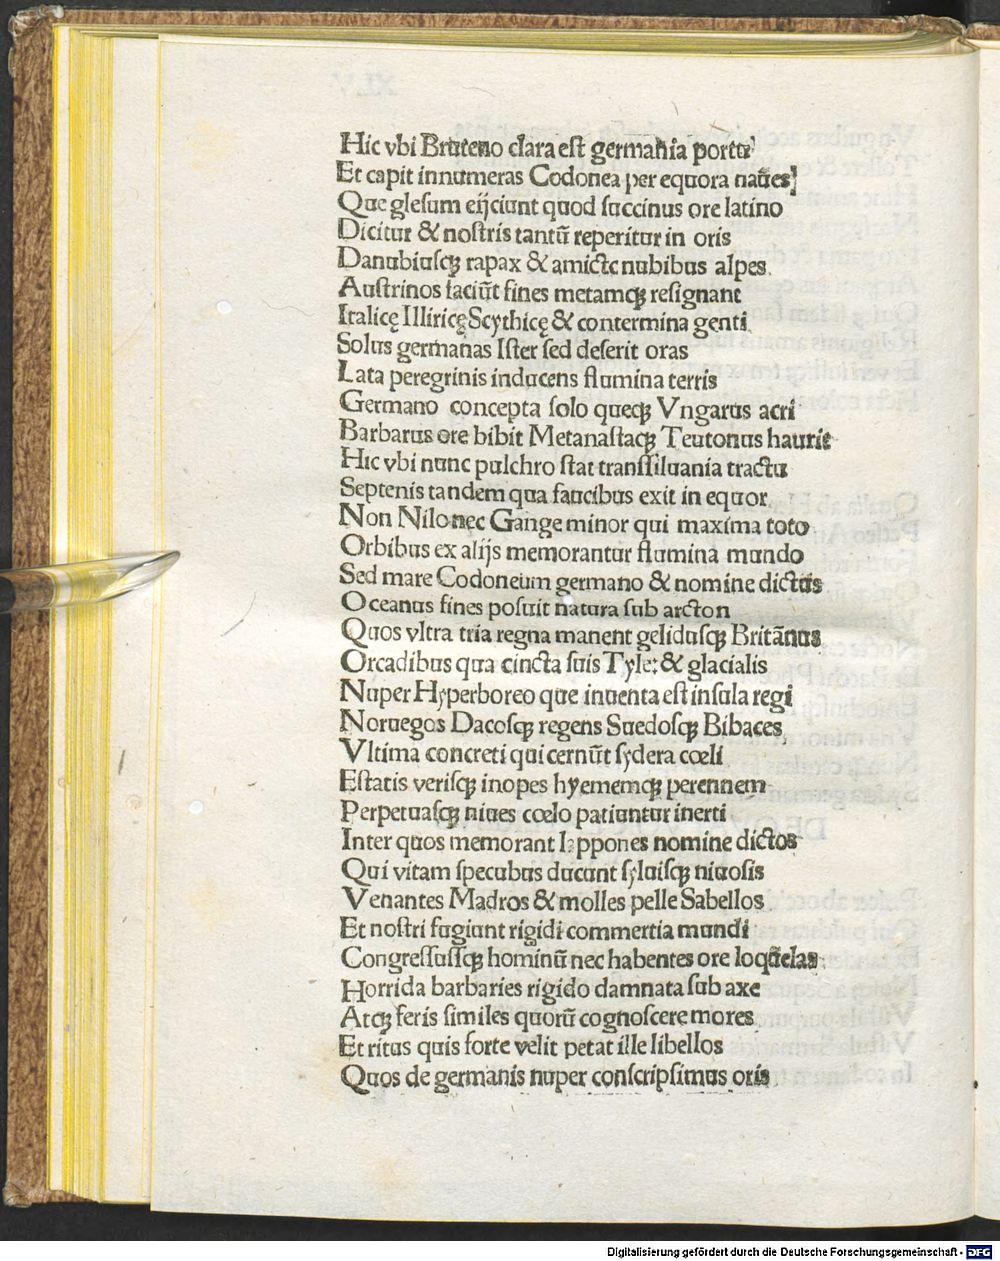 Hic vbi Bruteno clara est germania portu
Et capit innumeras Codonea per equora naues
Que glesum eijciunt quod succinus ore latino
Dicitur & nostris tantū reperitur in oris
Danubiusqꝫ rapax & amicte nubibus alpes.
Austrinos faciūt fines metamqꝫ resignant
Italicę Illiricę Scythicę & contermina genti
Solus germanas Ister sed deserit oras
Lata peregrinis inducens flumina terris
Germano concepta solo queqꝫ Vngarus acri
Barbarus ore bibit Metanastaqꝫ Teutonus haurit
Hic vbi nunc pulchro stat transsiluania tractu
Septenis tandem qua faucibus exit in equor
Non Nilo nec Gange minor qui maxima toto
Orbibus ex alijs memorantur flumina mundo
Sed mare Codoneum germano & nomine dictus
Oceanus fines posuit natura sub arcton
Quos vltra tria regna manent gelidusqꝫ Britānus
Orcadibus qua cincta suis Tyle: & glacialis
Nuper Hyperboreo que inuenta est insula regi
Noruegos Dacosqꝫ regens Suedosqꝫ Bibaces
Vltima concreti qui cernūt sydera cœli
Estatis verisqꝫ inopes hyememqꝫ perennem
Perpetuasqꝫ niues cœlo patiuntur inerti
Inter quos memorant Lappones nomine dictos
Qui vitam specubus ducunt syluisqꝫ niuosis
Venantes Madros & molles pelle Sabellos
Et nostri fugiunt rigidi commertia mundi
Congressussqꝫ hominū nec habentes ore loquelas
Horrida barbaries rigido damnata sub axe
Atqꝫ feris similes quorū cognoscere mores
Et ritus quis forte velit petat ille libellos
Quos de germanis nuper conscripsimus oris
Digitalisierung gefördert durch die Deutsche Forschungsgemeinschaft - DFG